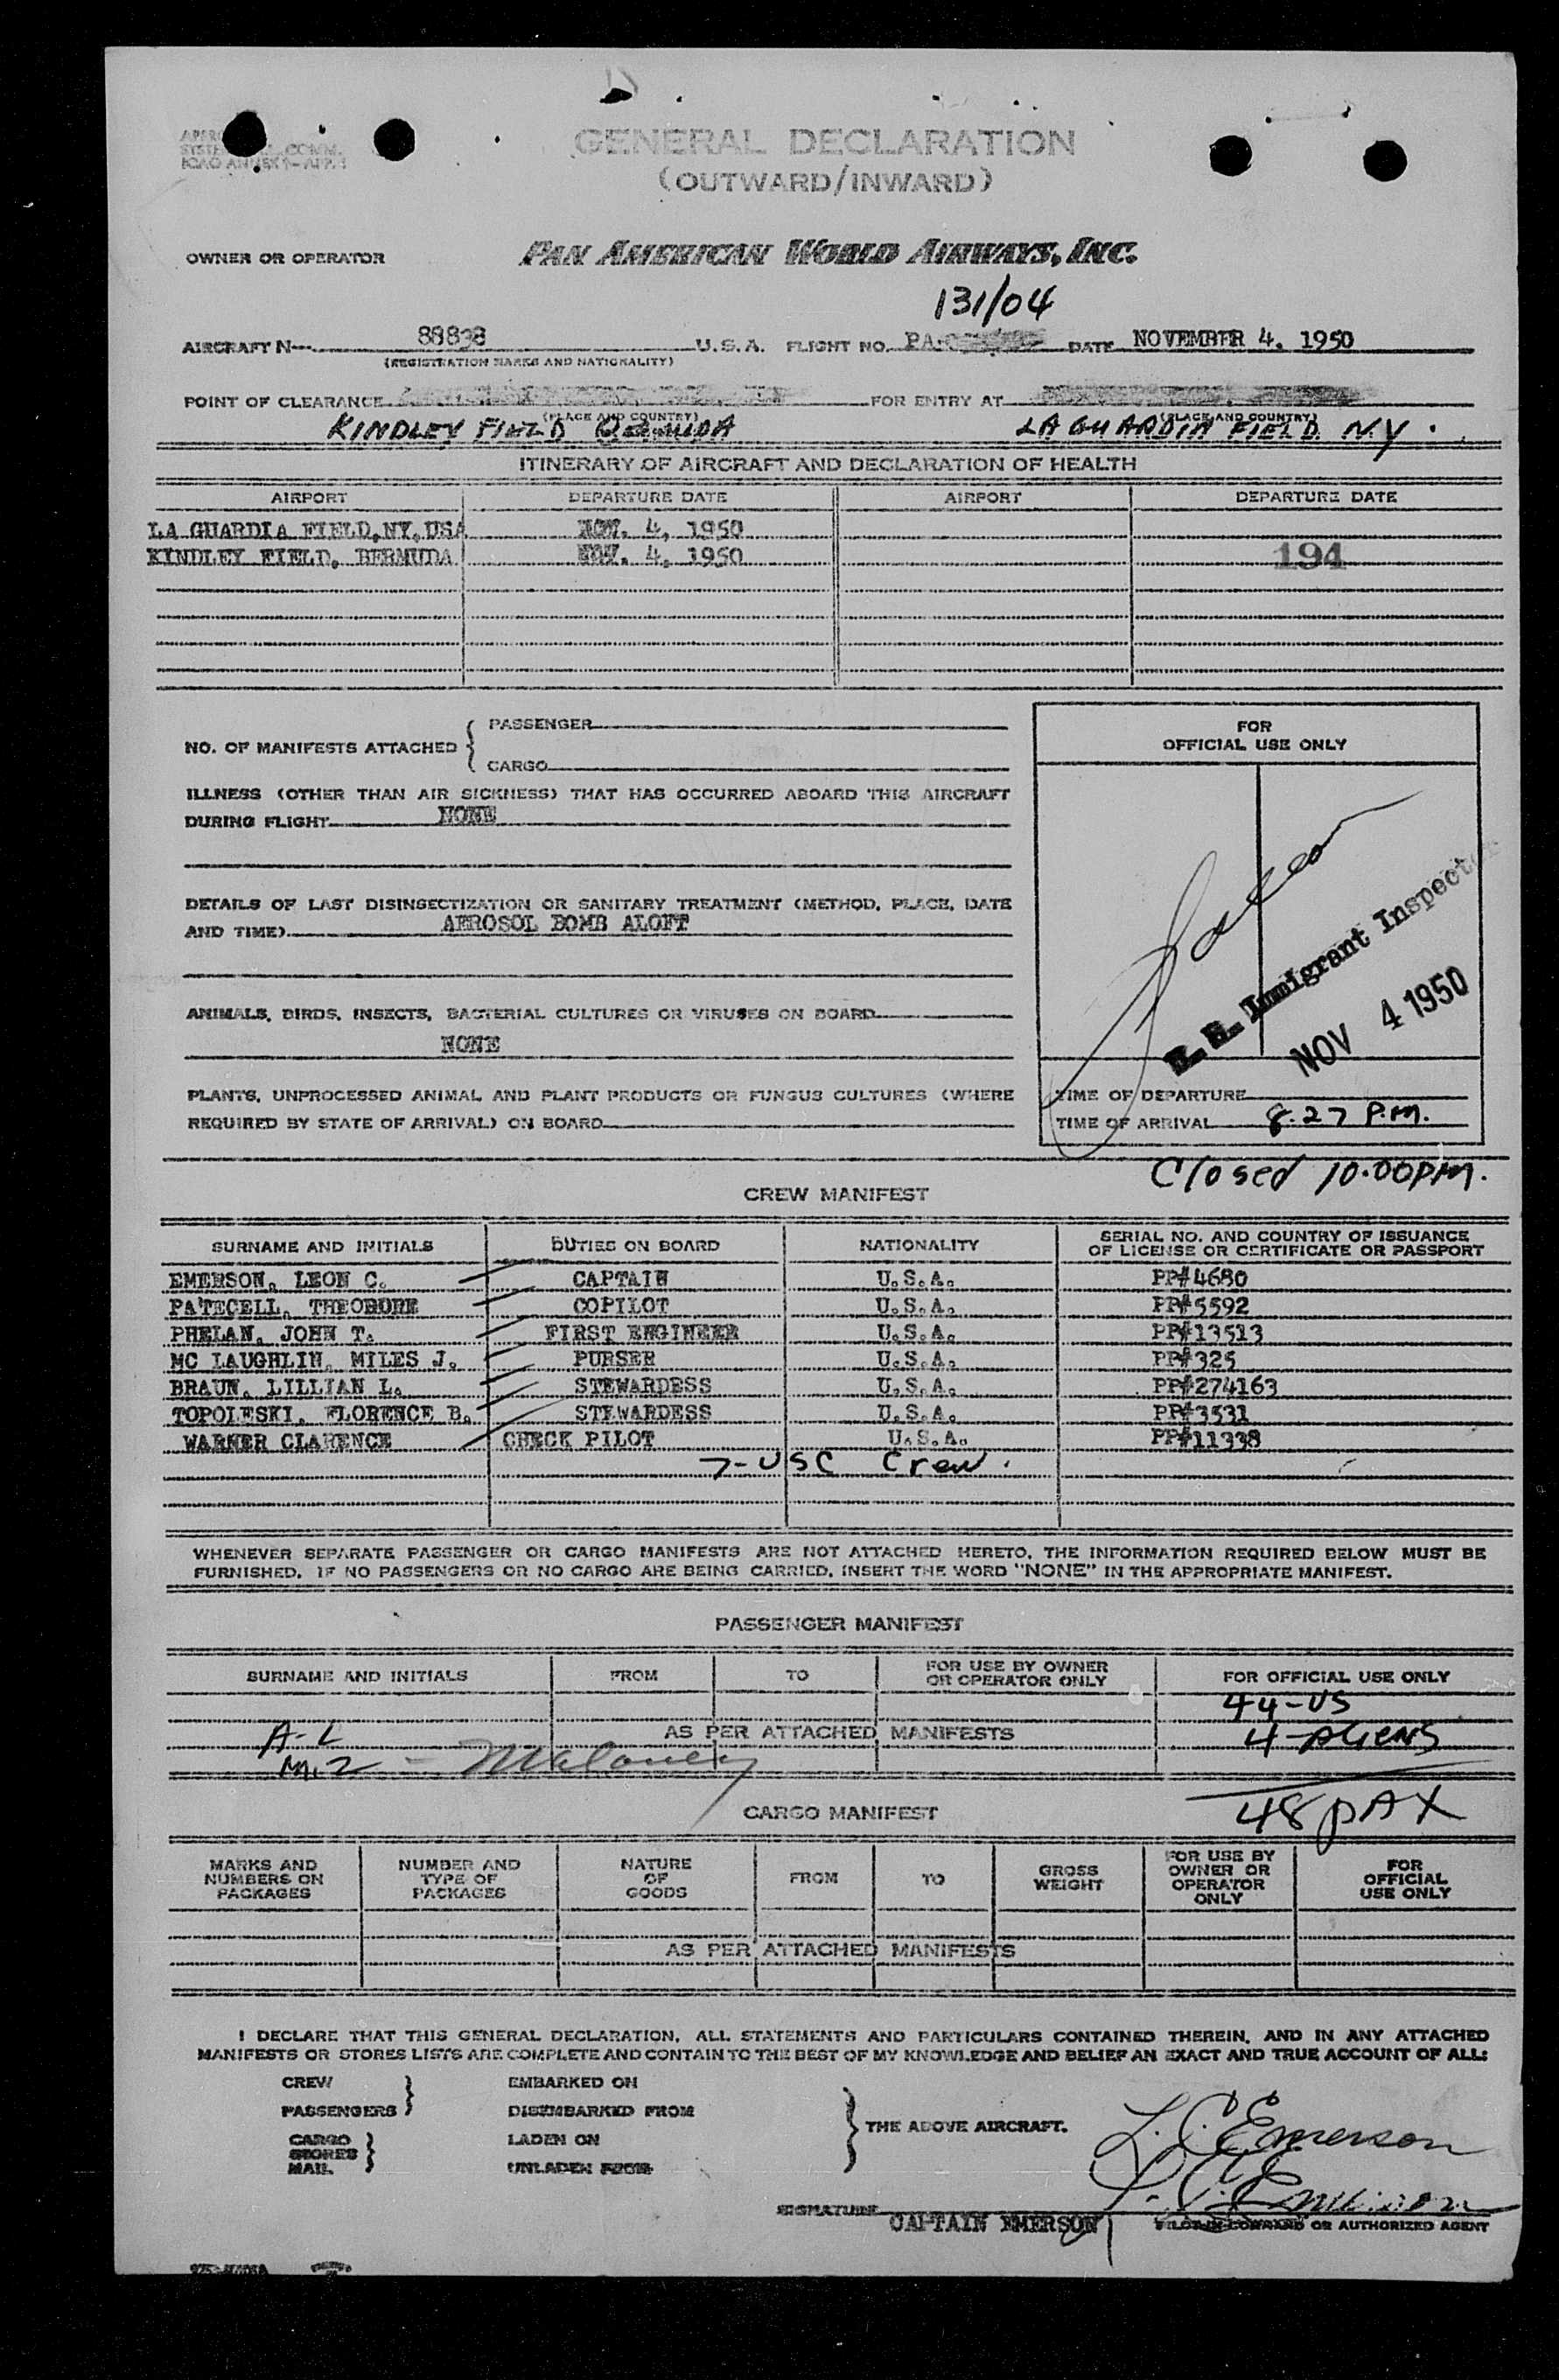 GENERAL DECLARATION
(OUTWARD/INWARD)
OWNER OR OPERATOR PAN AMERICAN WORLD AIRWAYS, INC.
131/04
AIRCRAFT N 88838 U.S.A. FLIGHT NO. DATE NOVEMBER 4, 1950
(REGISTRATION MARKS AND NATIONALITY)
POINT OF CLEARANCE FOR ENTRY AT
(PLACE AND COUNTRY) (PLACE AND COUNTRY)
KINDLEY FIELD BERMUDA LA GUARDIA FIELD NY.
ITINERARY OF AIRCRAFT AND DECLARATION OF HEALTH
AIRPORT DEPARTURE DATE AIRPORT DEPARTURE DATE
LA GUARDIA FIELD,NY,USA NOV. 4, 1950
KINDLEY FIELD, BERMUDA NOV. 4, 1950 194
NO. OF MANIFESTS ATTACHED { PASSENGER
CARGO
FOR
OFFICIAL USE ONLY
ILLNESS (OTHER THAN AIR SICKNESS) THAT HAS OCCURRED ABOARD THIS AIRCRAFT
DURING FLIGHT NONE
DETAILS OF LAST DISINSECTIZATION OR SANITARY TREATMENT (METHOD, PLACE, DATE
AND TIME) AEROSOL BOMB ALOFT
ANIMALS, BIRDS, INSECTS, BACTERIAL CULTURES OR VIRUSES ON BOARD
NONE
PLANTS, UNPROCESSED ANIMAL AND PLANT PRODUCTS OR FUNGUS CULTURES (WHERE
REQUIRED BY STATE OF ARRIVAL) ON BOARD
Immigrant Inspector
NOV 4 1950
TIME OF DEPARTURE
TIME OF ARRIVAL 8.27 P.M.
Closed 10.00PM.
CREW MANIFEST
SURNAME AND INITIALS DUTIES ON BOARD NATIONALITY SERIAL NO. AND COUNTRY OF ISSUANCE
OF LICENSE OR CERTIFICATE OR PASSPORT
EMERSON, LEON C. CAPTAIN U.S.A. PP#4680
PATECELL, THEODORE COPILOT U.S.A. PP#5592
PHELAN, JOHN T. FIRST ENGINEER U.S.A. PP#13513
MC LAUGHLIN, MILES J. PURSER U.S.A. PP#325
BRAUN, LILLIAN L. STEWARDESS U.S.A. PP#274163
TOPOLESKI, FLORENCE B. STEWARDESS U.S.A. PP#3531
WARNER CLARENCE CHECK PILOT U.S.A. PP#11338
7-USC Crew.
WHENEVER SEPARATE PASSENGER OR CARGO MANIFESTS ARE NOT ATTACHED HERETO, THE INFORMATION REQUIRED BELOW MUST BE
FURNISHED. IF NO PASSENGERS OR NO CARGO ARE BEING CARRIED, INSERT THE WORD "NONE" IN THE APPROPRIATE MANIFEST.
PASSENGER MANIFEST
SURNAME AND INITIALS FROM TO FOR USE BY OWNER
OR OPERATOR ONLY FOR OFFICIAL USE ONLY
44-US
A-L AS PER ATTACHED MANIFESTS 4-ALIENS
M.Z - Maloney
CARGO MANIFEST 48 PAX
MARKS AND
NUMBERS ON
PACKAGES
NUMBER AND
TYPE OF
PACKAGES
NATURE
OF
GOODS
FROM TO
GROSS
WEIGHT
FOR USE BY
OWNER OR
OPERATOR
ONLY
FOR
OFFICIAL
USE ONLY
AS PER ATTACHED MANIFESTS
I DECLARE THAT THIS GENERAL DECLARATION, ALL STATEMENTS AND PARTICULARS CONTAINED THEREIN, AND IN ANY ATTACHED
MANIFESTS OR STORES LISTS ARE COMPLETE AND CONTAIN TO THE BEST OF MY KNOWLEDGE AND BELIEF AN EXACT AND TRUE ACCOUNT OF ALL:
CREW EMBARKED ON
PASSENGERS DISEMBARKED FROM
THE ABOVE AIRCRAFT.
CARGO LADEN ON
STORES
MAIL UNLADEN FROM
L. C. Emerson
L. C. Emerson
SIGNATURE CAPTAIN EMERSON PILOT IN COMMAND OR AUTHORIZED AGENT